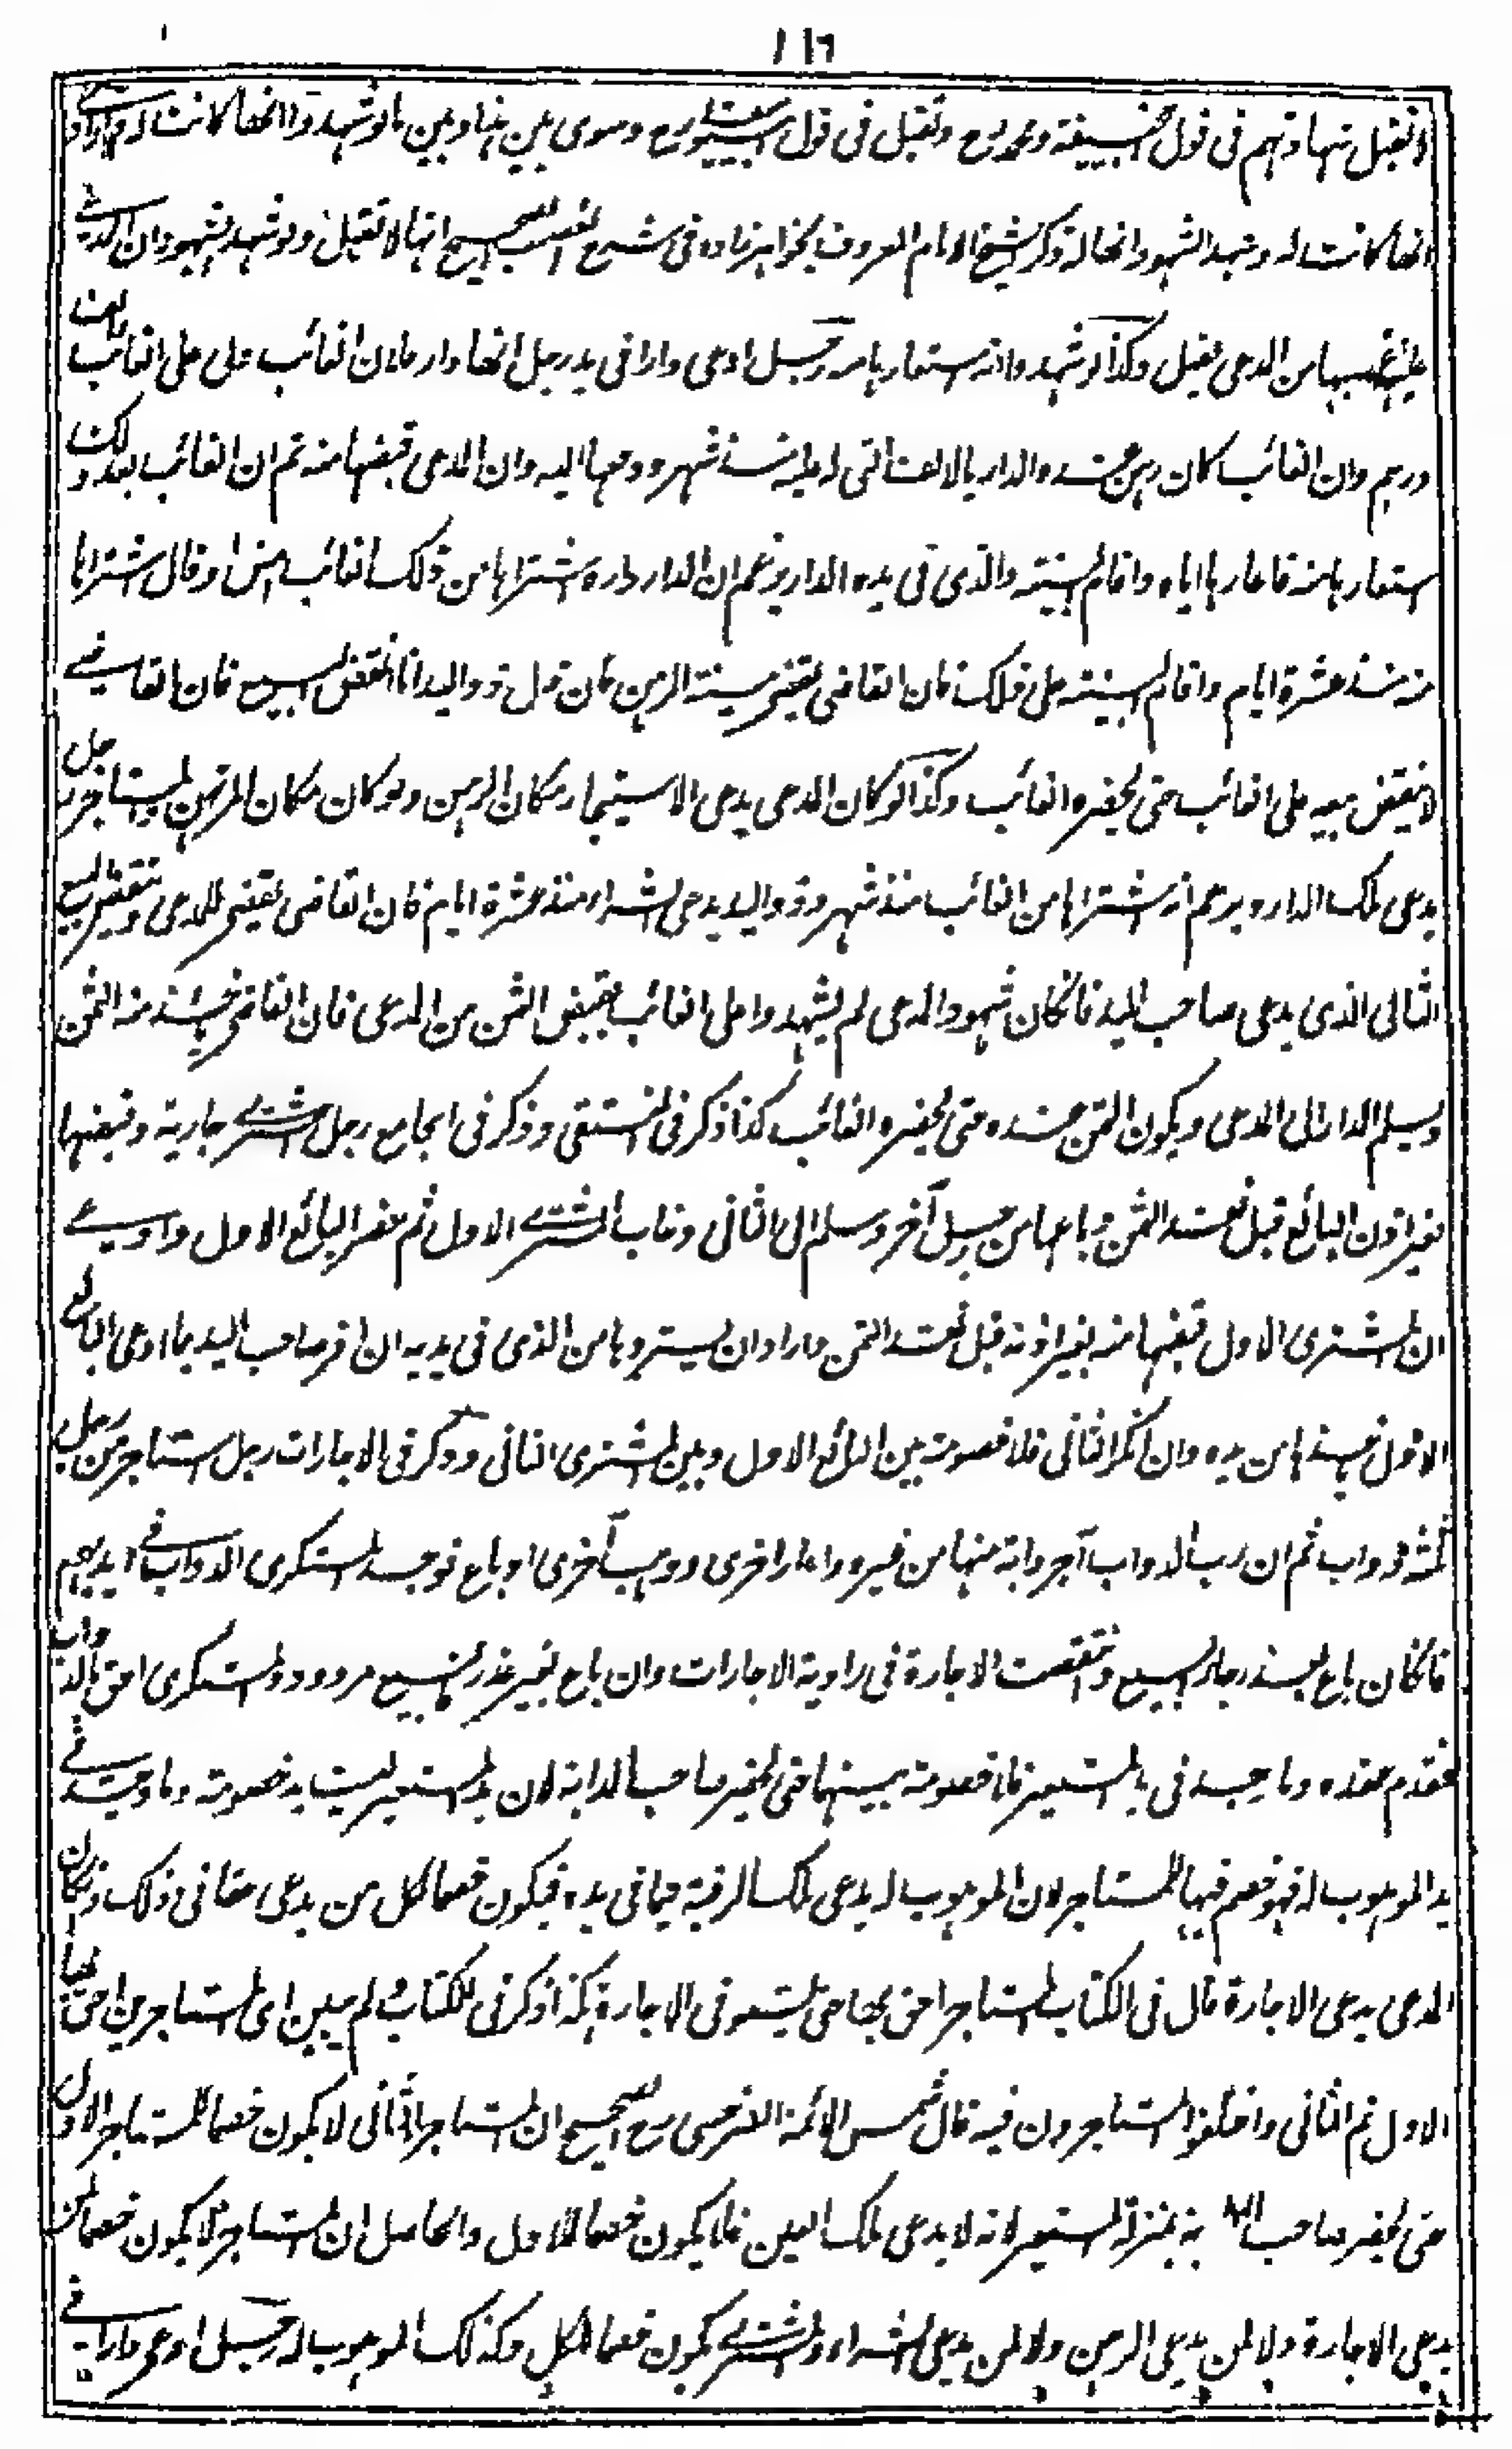 ١١٦
لا تقبل شهادتهم فى قول ابيحنيفة ومحمد رح وتقبل فى قول ابييوسف رح وسوى بين هذا وبين ما لو شهدوا انها كانت له
انها كانت له وشهد الشهود انها له وذكر الشيخ الامام المعروف بخواهرزاده فى شرح الغصب الصحيح انها لا تقبل ولو شهد الشهود ان المدعى
عليه غصبها من المدعى يقبل وكذا لو شهدوا انه استعارها منه رجل ادعى دارا فى يد رجل انها دار فلان الغائب وله على الغائب الف
درهم وان الغائب كان رهن عنده الدار بالالف التى له عليه منذ شهر ودفعها اليه وان المدعى قبضها منه ثم ان الغائب بعد ذلك
استعارها منه فاعارها اياه واقام البينة والذى فى يده الدار يزعم ان الدار داره اشتراها من ذلك الغائب امس او قال اشتراها
منه منذ عشرة ايام واقام البينة على ذلك فان القاضى يقضى ببينة الرهن فان قال ذو اليد انا انقض البيع فان القاضى
لا ينقض بيعه على الغائب حتى يحضره الغائب وكذا لو كان المدعى يدعى الاستيجار مكان الرهن ولو كان مكان المرتهن والمستاجر رجل
يدعى ملك الدار ويزعم انه اشتراها من الغائب منذ شهر وذو اليد يدعى الشراء منذ عشرة ايام فان القاضى يقضى للمدعى وينتقض البيع
الثانى الذى يدعى صاحب اليد فان كان شهود المدعى لم يشهدوا على الغائب بقبض الثمن من المدعى فان القاضى ياخذ منه الثمن
ويسلم الدار الى المدعى ويكون الثمن عنده حتى يحضره الغائب كذا ذكر فى المنتقى وذكر فى الجامع رجل اشترى جارية وقبضها
بغير اذن البائع قبل نقد الثمن وباعها من رجل آخر وسلم الى الثانى وغاب المشترى الاول ثم حضر البائع الاول وادعى
ان المشترى الاول قبضها منه بغير اذنه قبل نقد الثمن واراد ان يستردها من الذى فى يديه ان اقر صاحب اليد بما ادعى البائع
الاول ياخذها من يده وان انكر الثانى فلا خصومة بين البائع الاول وبين المشترى الثانى وذكر فى الاجارات رجل استاجر من رجل
ثلثة دواب ثم ان رب الدواب آجر دابة منها من غيره واعار اخرى ووهب آخرى او باع فوجد المستكرى الدواب فى ايديهم
فان كان باع بعذر جاز البيع وانتقضت الاجارة فى رواية الاجارات وان باع بغير عذر فالبيع مردود والمستكرى احق بالدواب
لتقدم عقده وما وجد فى يد المستعير فلا خصومة بينهما حتى يحضر صاحب الدابة لان يد المستعير ليست يد خصومة وما وجد فى
يد الموهوب له فهو خصم فيها للمستاجر لان الموهوب له يدعى ملك الرقبة فيما فى يده فيكون خصما لكل من يدعى حقا فى ذلك وان كان
المدعى يدعى الاجارة قال فى الكتاب المستاجر احق بها حتى يستوفى الاجارة هكذا ذكر فى الكتاب ولم يبين اى المستاجرين احق بها
الاول ثم الثانى واختلفوا المستاجرون فيه قال شمس الائمة السرخسى رح الصحيح ان المستاجر الثانى لا يكون خصما للمستاجر الاول
حتى يحضر صاحب الدابة بمنزلة المستعير لانه لا يدعى ملك العين فلا يكون خصما للاول والحاصل ان المستاجر لا يكون خصما لمن
يدعى الاجارة ولا لمن يدعى الرهن ولا لمن يدعى الشراء والمشترى يكون خصما للكل وكذلك الموهوب له رجل ادعى دارا فى